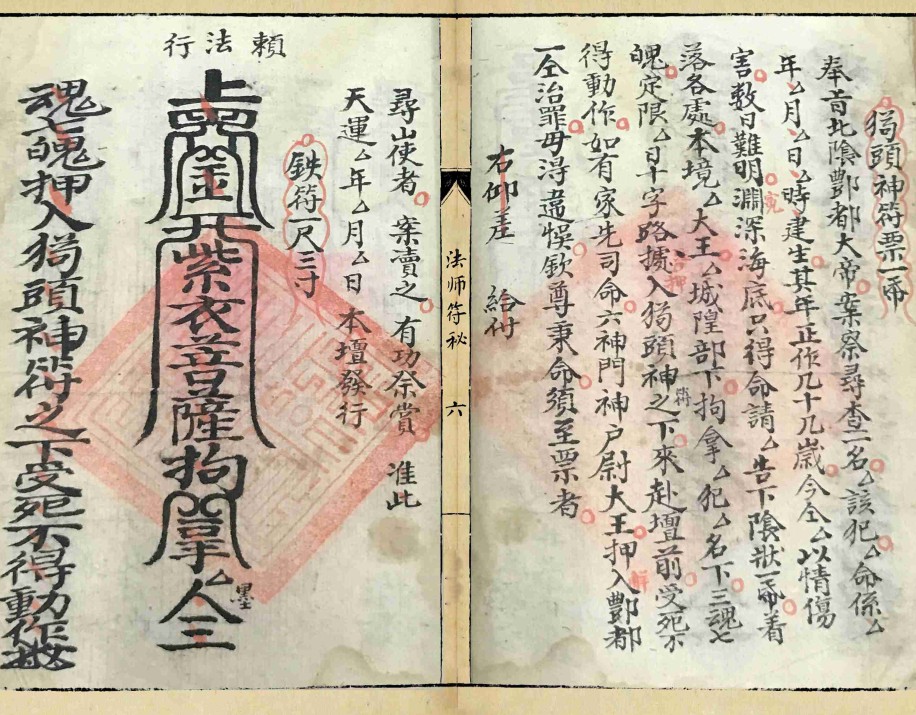 猖頭神符票一帋
奉旨北陰酆都大帝案祭尋查一名厶該犯厶命係厶
年厶月厶日厶時建生其年正作几十几歲今仝厶以情傷
害數日難明淵深海底只得命請厶告下陰狀一帋着
落各處本境厶大王厶城隍部下拘拿厶犯厶名下三魂七
魄定限厶日十字路攄入猖頭神符之下來赴壇前受死不
得動作如有家先司命六神門神户尉大王押入酆都
一仝治罪毋得違悞欽尊秉命須至票者
右仰差 給付
尋山使者 案賣之 有功祭賞 准此
天運厶年厶月厶日 本壇發行
鉄符一尺三寸
頼法行
上 金 开紫衣菩薩拘 拿厶人三
墨
魂七魄押入猖頭神符之下受死不得動作
法师符秘
六